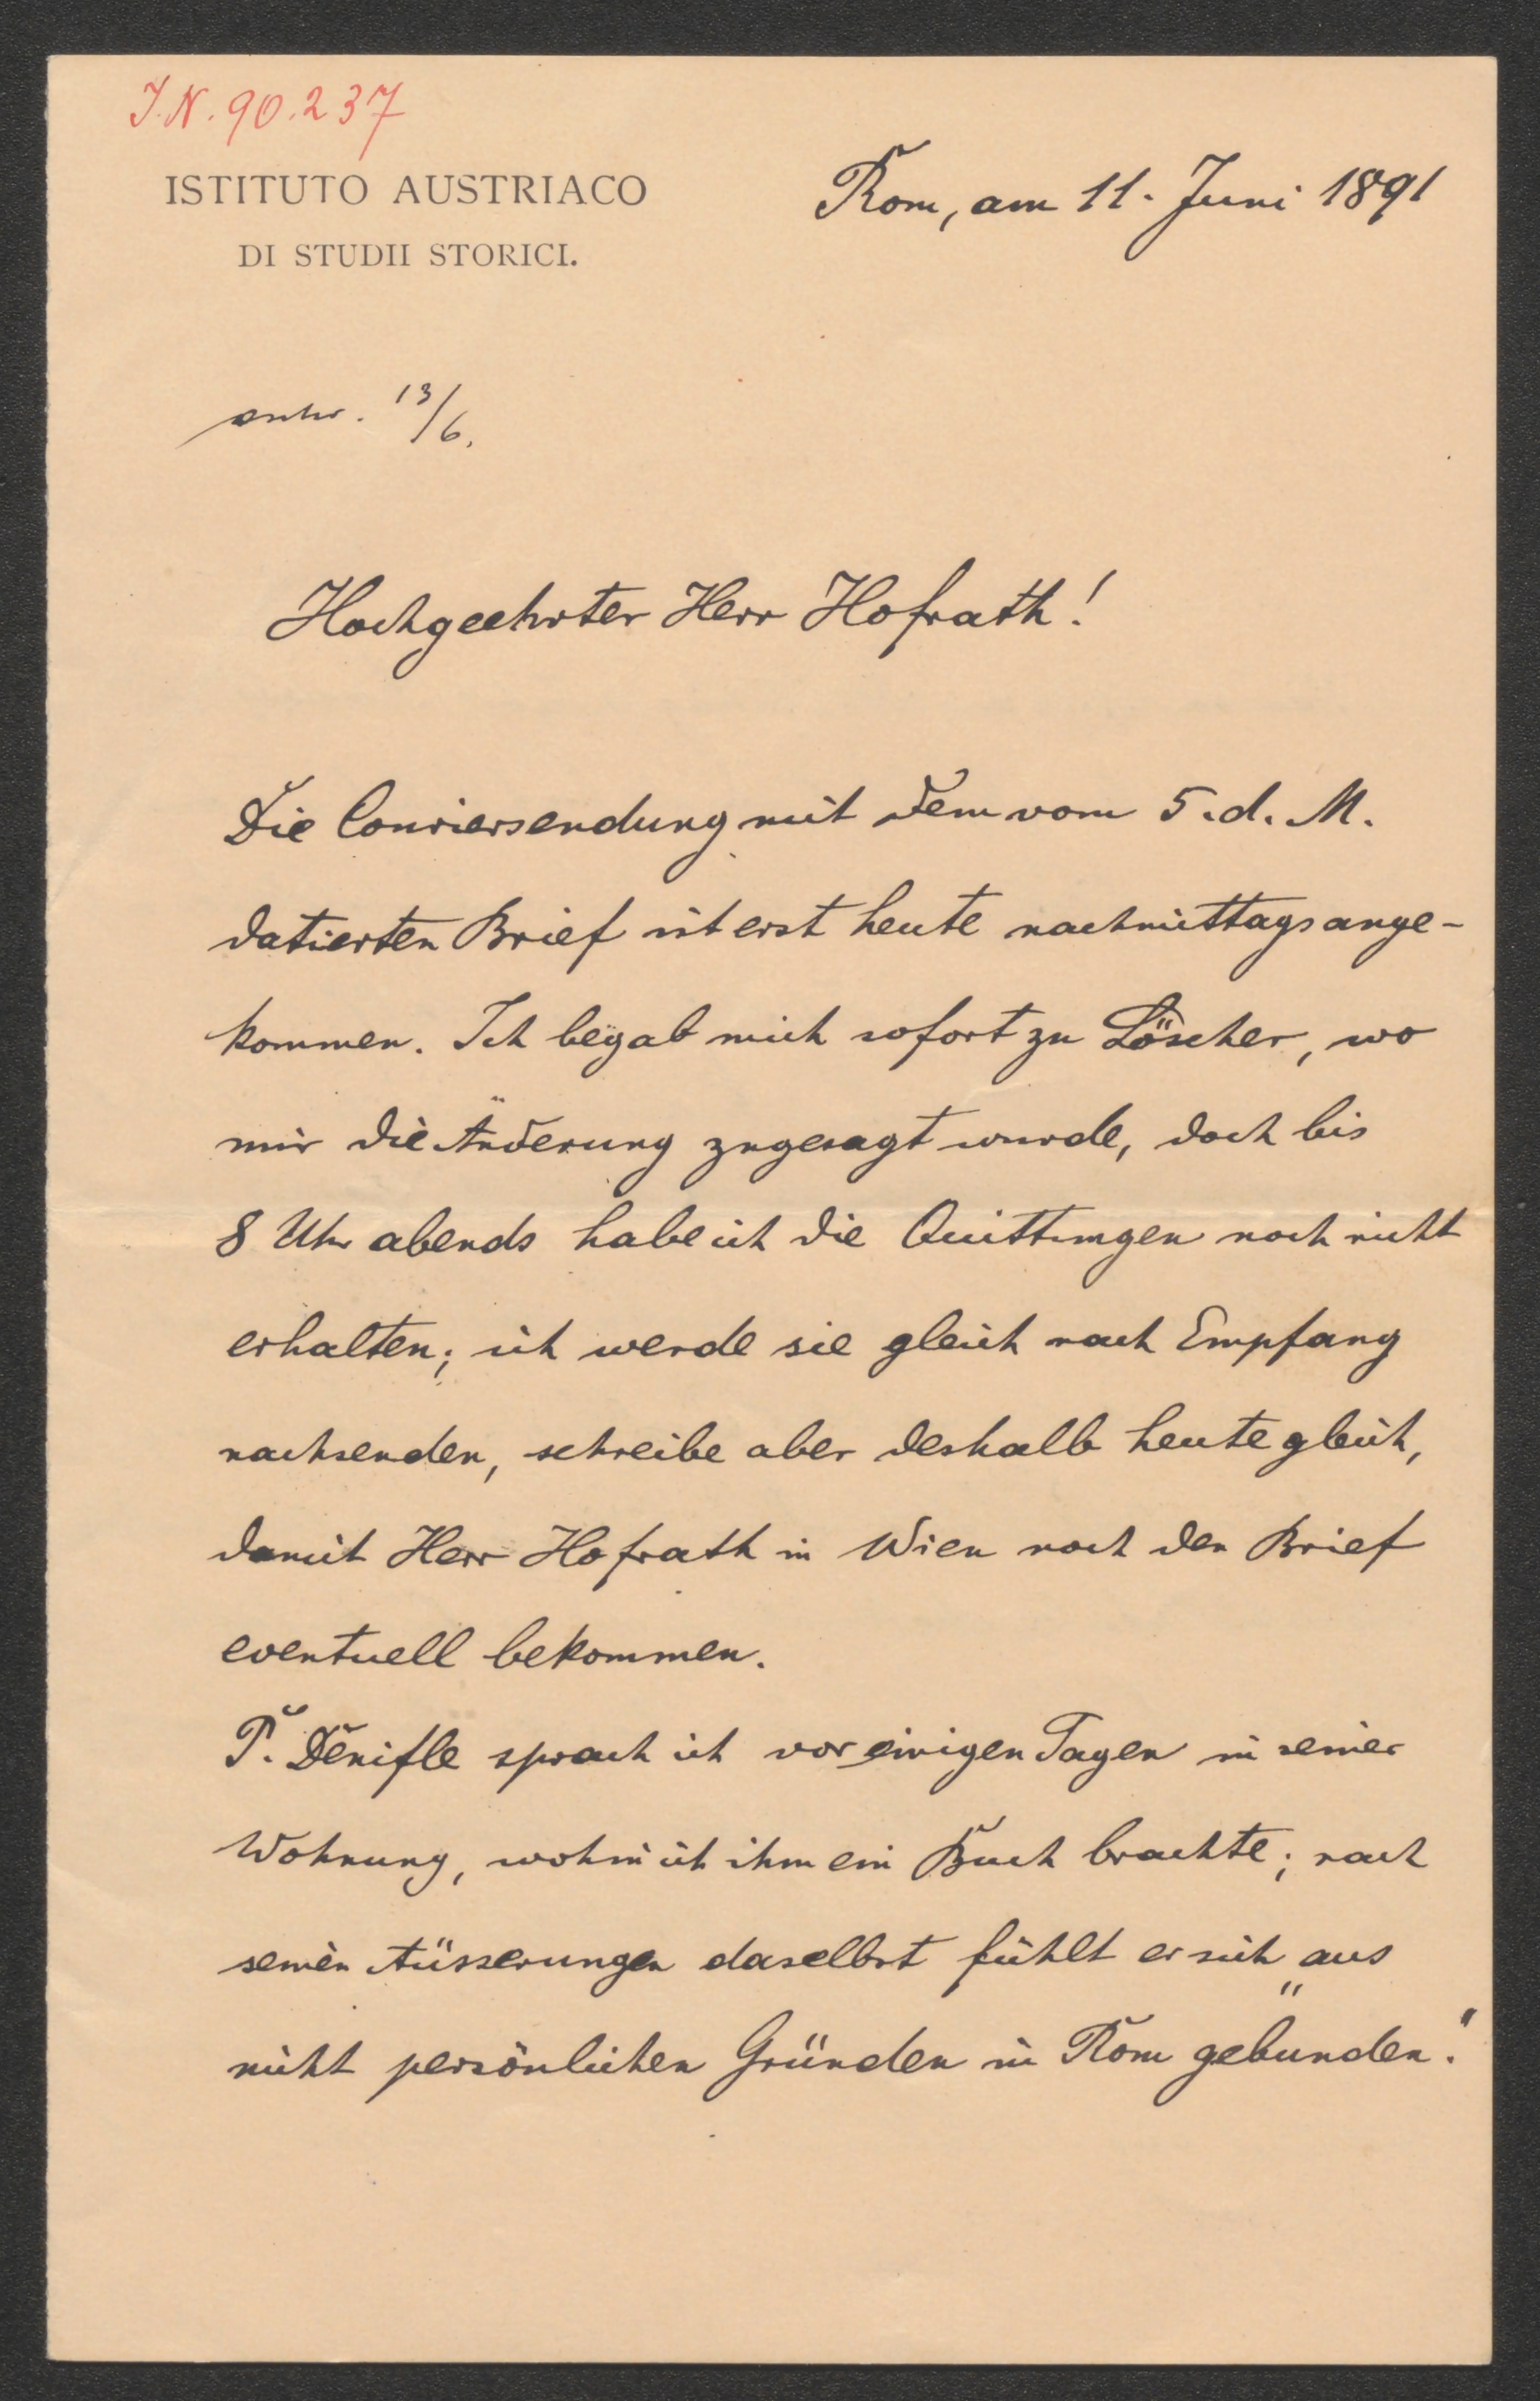 J.N. 90.237
ISTITUTO AUSTRIACO
DI STUDII STORICI.
Rom, am 11. Juni 1891
antw. 13/6.
Hochgeehrter Herr Hofrath!
Die Couriersendung mit dem vom 5. d. M.
datierten Brief ist erst heute nachmittags ange-
kommen. Ich begab mich sofort zu Löscher, wo
mir die Änderung zugesagt wurde, doch bis
8 Uhr abends habe ich die Quittungen noch nicht
erhalten; ich werde sie gleich nach Empfang
nachsenden, schreibe aber deshalb heute gleich,
damit Herr Hofrath in Wien noch den Brief
eventuell bekommen.
P. Denifle sprach ich vor einigen Tagen in seiner
Wohnung, wohin ich ihm ein Buch brachte; nach
seinen Äüsserungen daselbst fühlt er sich „aus
nicht persönlichen Gründen in Rom gebunden."